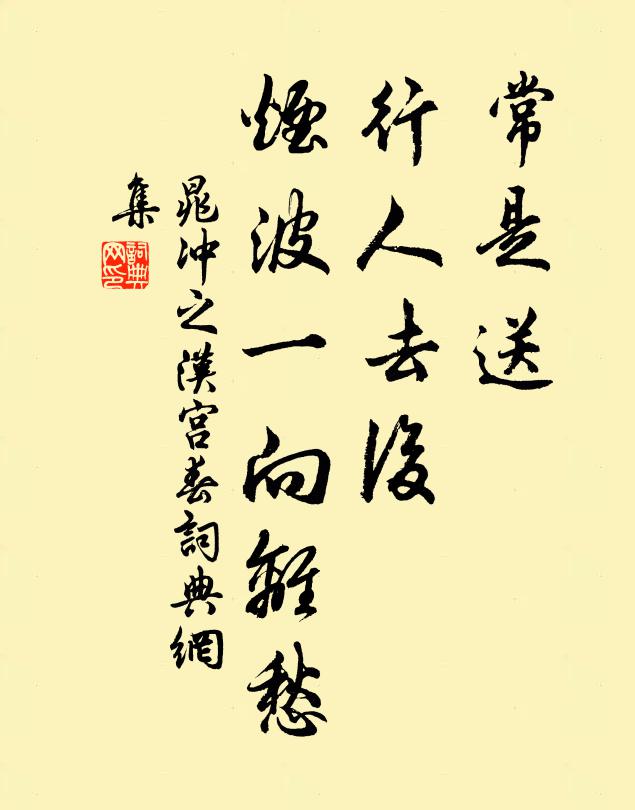 常是送
行人去後
煙波一向離愁
晁冲之漢宮春詞典網
集
詞典網印